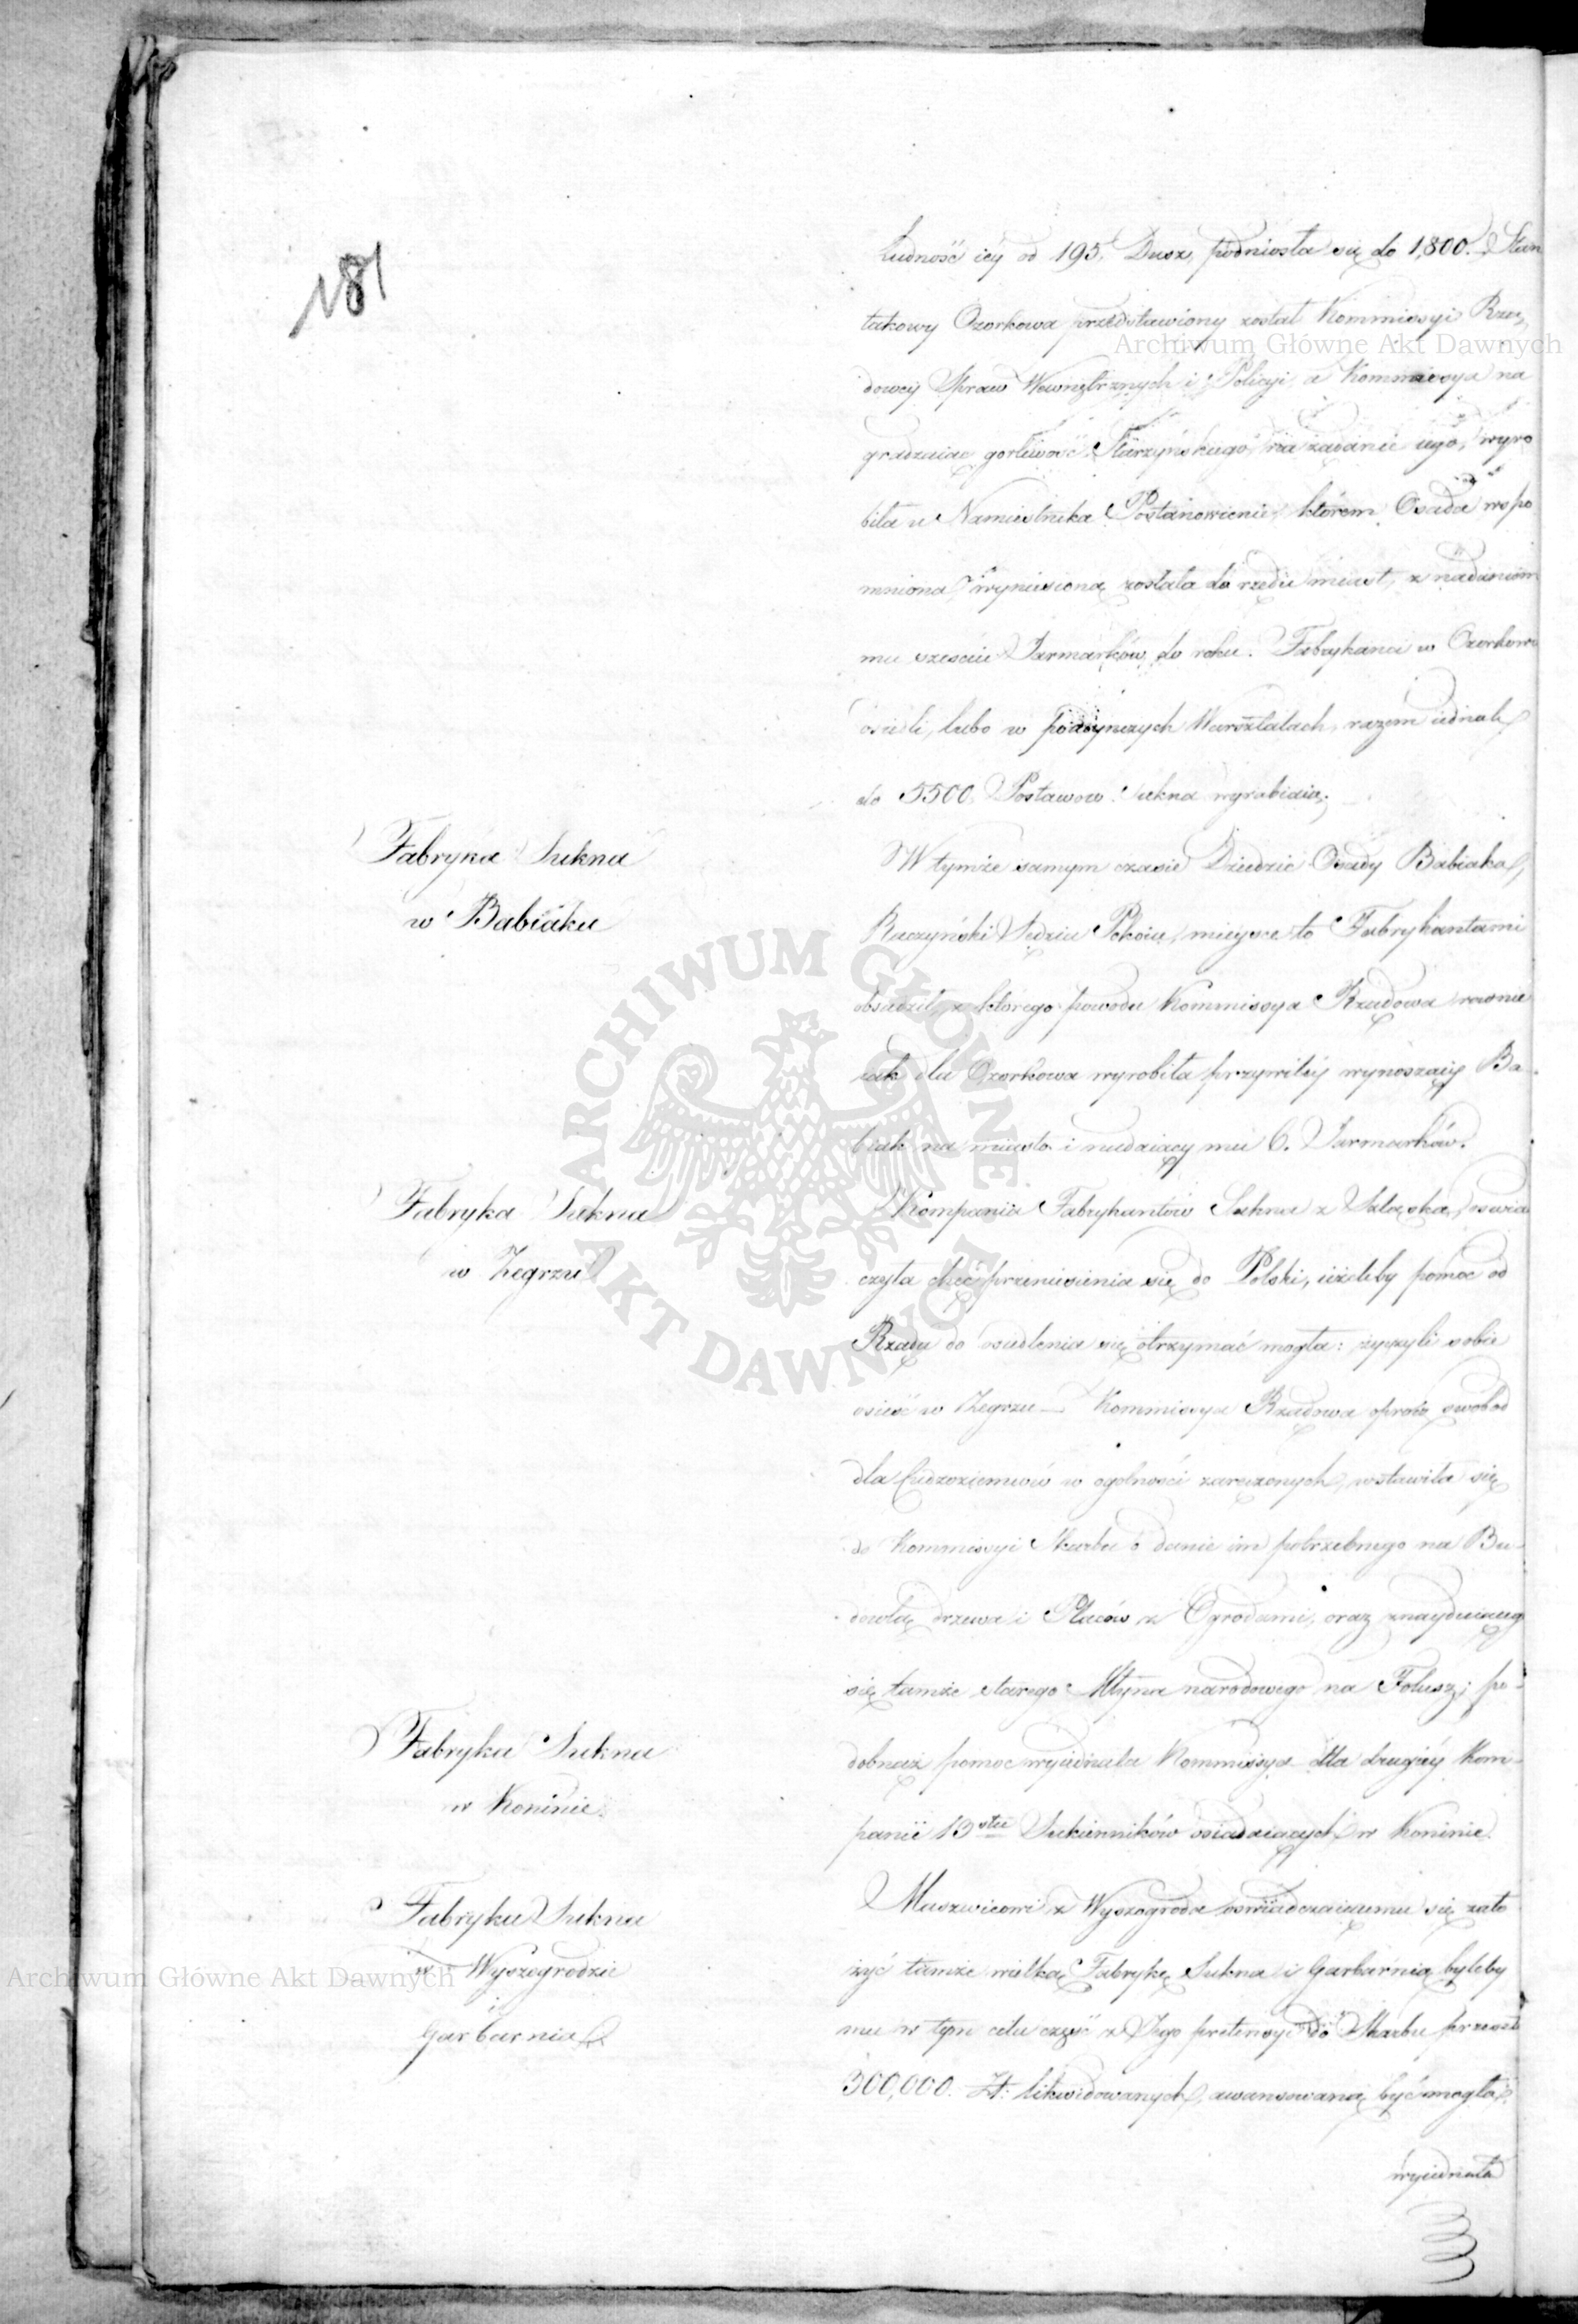 181
Ludność iéy od 195. Dusz, podniosła się do 1,800. Stan
takowy Ozorkowa przedstawiony został Kommissyi Rzą,
dowéy Spraw Wewnętrznych i Policyi, a Kommissya na
gradzaiąc gorliwość Starzyńskiego, na żądanie iego, wyro
biła u Namiestnika Postanowienie, którem Osada wspo
mniona, wyniesioną została do rzędu miast, z nadaniem
mu sześciu Jarmarków do roku. Fabrykanci w Ozorkowie
osiedli, lubo w poiedynczych Warsztatach, razem iednak
do 5500. Postawów Sukna wyrabiaią.
Fabryka Sukna
w Babiaku
W tymże samym czasie Dziedzic Osady Babiaka,
Raczyński Sędzia Pokoiu, mieysce to Fabrykantami
obsadził, z którego powodu Kommissya Rządowa rownie
iak dla Ozorkowa wyrobiła przywiléy wynoszący Ba-
biak na miasto i nadaiący mu 6. Jarmarków.
Fabryka Sukna
w Zegrzu
Kompania Fabrykantów Sukna z Szląska, oświad
czyła chęć przeniesienia się do Polski, iżeliby pomoc od
Rządu do osiedlenia się otrzymać mogła: życzyli sobie
osieść w Zegrzu — Kommissya Rządowa oprócz swobód
dla Cudzoziemców w ogolności zaręczonych, wstawiła się
do Kommissyi Skarbu o danie im potrzebnego na Bu-
dowlę drzewa i Placów z Ogrodami, oraz znayduiącego
się tamże starego Młyna narodowego na Folusz; po-
Fabryka Sukna
w Koninie.
dobnąż pomoc wyiednała Kommissya dla drugiéy Kom-
panii 13stu Sukienników osiadaiących w Koninie.
Fabryka Sukna
w Wyszogrodzie
Garbarnia
Maszwicowi z Wyszogroda oswiadczaiącemu się zało
żyć tamże wielką Fabrykę Sukna i Garbarnią byleby
mu w tym celu część z Jego pretensyi do Skarbu przeszło
300,000. Zł: likwidowanych, awansowaną być mogła,
wyiednała